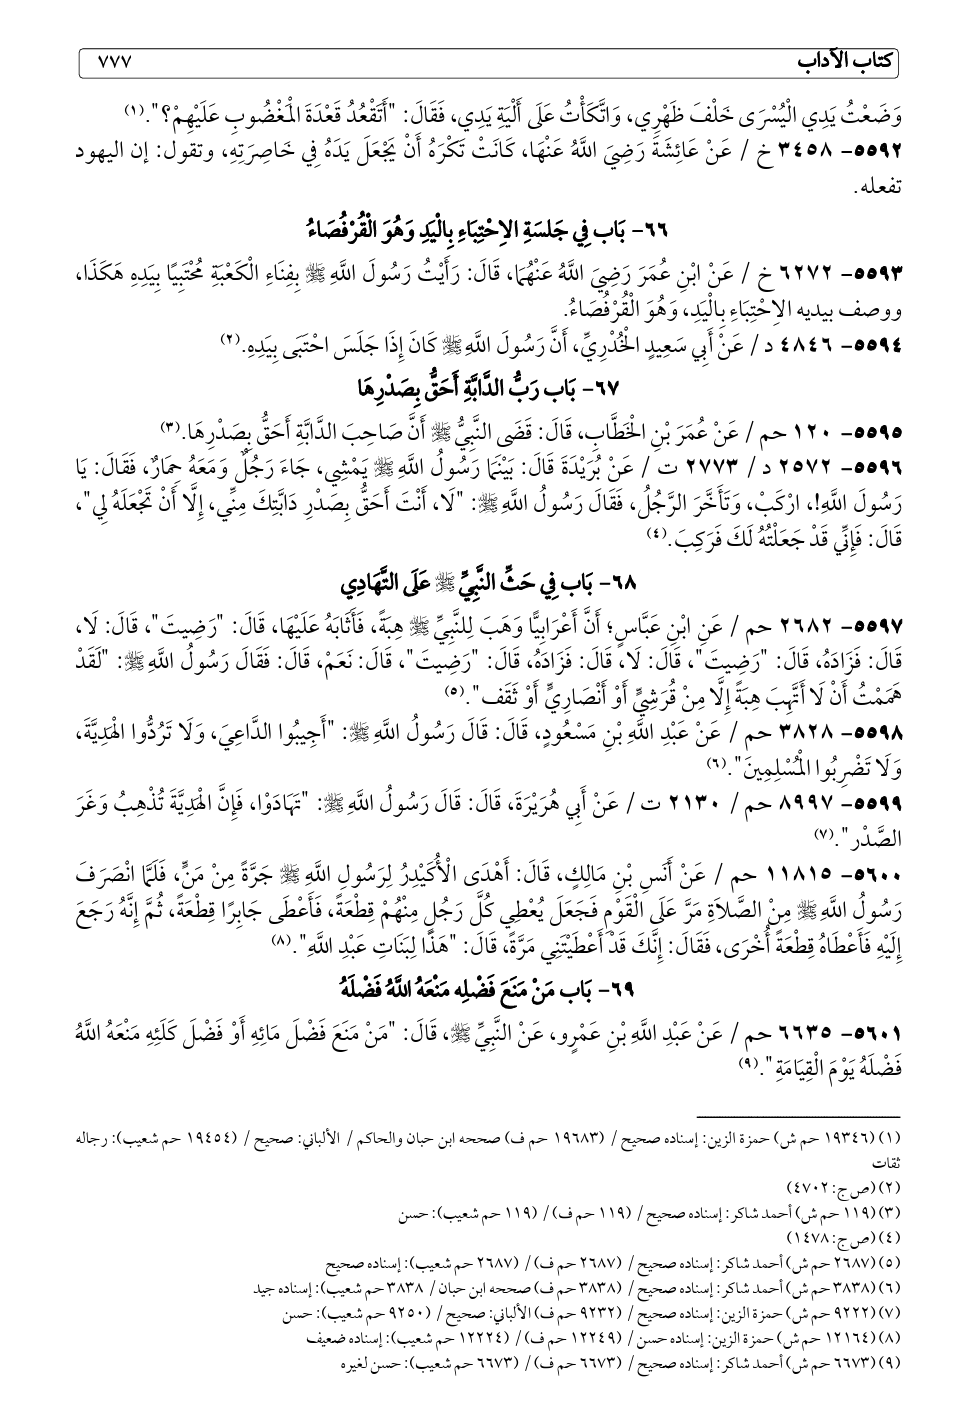 كتاب الآداب ٧٧٧
وَضَعْتُ يَدِي الْيُسْرَى خَلْفَ ظَهْرِي، وَاتَّكَأْتُ عَلَى أَلْيَةِ يَدِي، فَقَالَ: "أَتَقْعُدُ قَعْدَةَ الْمَغْضُوبِ عَلَيْهِمْ؟".(١)
٥٥٩٢- ٣٤٥٨ خ / عَنْ عَائِشَةَ رَضِيَ اللَّهُ عَنْهَا، كَانَتْ تَكْرَهُ أَنْ يَجْعَلَ يَدَهُ فِي خَاصِرَتِهِ، وتقول: إن اليهود
تفعله.
٦٦- بَاب فِي جَلسَةِ الاِحْتِبَاءِ بِالْيَدِ وَهُوَ الْقُرْفُصَاءُ
٥٥٩٣- ٦٢٧٢ خ / عَنْ ابْنِ عُمَرَ رَضِيَ اللَّهُ عَنْهُمَا، قَالَ: رَأَيْتُ رَسُولَ اللَّهِ ﷺ بِفِنَاءِ الْكَعْبَةِ مُحْتَبِيًا بِيَدِهِ هَكَذَا،
ووصف بيديه الاِحْتِبَاءِ بِالْيَدِ، وَهُوَ الْقُرْفُصَاءُ.
٥٥٩٤- ٤٨٤٦ د/ عَنْ أَبِي سَعِيدٍ الْخُدْرِيِّ، أَنَّ رَسُولَ اللَّهِ ﷺ كَانَ إِذَا جَلَسَ احْتَبَى بِيَدِهِ.(٢)
٦٧- بَاب رَبُّ الدَّابَّةِ أَحَقُّ بِصَدْرِهَا
٥٥٩٥- ١٢٠ حم / عَنْ عُمَرَ بْنِ الْخَطَّابِ، قَالَ: قَضَى النَّبِيُّ ﷺ أَنَّ صَاحِبَ الدَّابَّةِ أَحَقُّ بِصَدْرِهَا.(٣)
٥٥٩٦- ٢٥٧٢ د/ ٢٧٧٣ ت / عَنْ بُرَيْدَةَ قَالَ: بَيْنَمَا رَسُولُ اللَّهِ ﷺ يَمْشِي، جَاءَ رَجُلٌ وَمَعَهُ حِمَارٌ، فَقَالَ: يَا
رَسُولَ اللَّهِ!، ارْكَبْ، وَتَأَخَّرَ الرَّجُلُ، فَقَالَ رَسُولُ اللَّهِ ﷺ: "لَا، أَنْتَ أَحَقُّ بِصَدْرِ دَابَّتِكَ مِنِّي، إِلَّا أَنْ تَجْعَلَهُ لِي"،
قَالَ: فَإِنِّي قَدْ جَعَلْتُهُ لَكَ فَرَكِبَ.(٤)
٦٨- بَاب فِي حَثِّ النَّبِيِّ ﷺ عَلَى التَّهَادِي
٥٥٩٧- ٢٦٨٢ حم / عَنِ ابْنِ عَبَّاسٍ؛ أَنَّ أَعْرَابِيًّا وَهَبَ لِلنَّبِيِّ ﷺ هِبَةً، فَأَثَابَهُ عَلَيْهَا، قَالَ: "رَضِيتَ"، قَالَ: لَا،
قَالَ: فَزَادَهُ، قَالَ: "رَضِيتَ"، قَالَ: لَا، قَالَ: فَزَادَهُ، قَالَ: "رَضِيتَ"، قَالَ: نَعَمْ، قَالَ: فَقَالَ رَسُولُ اللَّهِ ﷺ: "لَقَدْ
هَمَمْتُ أَنْ لَا أَتَّهِبَ هِبَةً إِلَّا مِنْ قُرَشِيٍّ أَوْ أَنْصَارِيٍّ أَوْ ثَقَف".(٥)
٥٥٩٨- ٣٨٢٨ حم / عَنْ عَبْدِ اللَّهِ بْنِ مَسْعُودٍ، قَالَ: قَالَ رَسُولُ اللَّهِ ﷺ: "أَجِيبُوا الدَّاعِيَ، وَلَا تَرُدُّوا الْهَدِيَّةَ،
وَلَا تَضْرِبُوا الْمُسْلِمِينَ".(٦)
٥٥٩٩- ٨٩٩٧ حم / ٢١٣٠ ت / عَنْ أَبِي هُرَيْرَةَ، قَالَ: قَالَ رَسُولُ اللَّهِ ﷺ: "تَهَادَوْا، فَإِنَّ الْهَدِيَّةَ تُذْهِبُ وَغَرَ
الصَّدْر".(٧)
٥٦٠٠- ١١٨١٥ حم / عَنْ أَنَسِ بْنِ مَالِكٍ، قَالَ: أَهْدَى الْأُكَيْدِرُ لِرَسُولِ اللَّهِ ﷺ جَرَّةً مِنْ مَنٍّ، فَلَمَّا انْصَرَفَ
رَسُولُ اللَّهِ ﷺ مِنْ الصَّلاَةِ مَرَّ عَلَى الْقَوْمِ فَجَعَلَ يُعْطِي كُلَّ رَجُلٍ مِنْهُمْ قِطْعَةً، فَأَعْطَى جَابِرًا قِطْعَةً، ثُمَّ إِنَّهُ رَجَعَ
إِلَيْهِ فَأَعْطَاهُ قِطْعَةً أُخْرَى، فَقَالَ: إِنَّكَ قَدْ أَعْطَيْتَنِي مَرَّةً، قَالَ: "هَذَا لِبَنَاتِ عَبْدِ اللَّهِ".(٨)
٦٩- بَاب مَنْ مَنَعَ فَضْلِه مَنْعَهُ اللَّهُ فَضْلَهُ
٥٦٠١- ٦٦٣٥ حم / عَنْ عَبْدِ اللَّهِ بْنِ عَمْرٍو، عَنْ النَّبِيِّ ﷺ، قَالَ: "مَنْ مَنَعَ فَضْلَ مَائِهِ أَوْ فَضْلَ كَلَئِهِ مَنْعَهُ اللَّهُ
فَضْلَهُ يَوْمَ الْقِيَامَةِ".(٩)
(١) (١٩٣٤٦ حم ش) حمزة الزين: إسناده صحيح / (١٩٦٨٣ حم ف) صححه ابن حبان والحاكم / الألباني: صحيح / (١٩٤٥٤ حم شعيب): رجاله
ثقات
(٢) (ص ج: ٤٧٠٢)
(٣) (١١٩ حم ش) أحمد شاكر: إسناده صحيح / (١١٩ حم ف) / (١١٩ حم شعيب): حسن
(٤) (ص ج: ١٤٧٨)
(٥) (٢٦٨٧ حم ش) أحمد شاكر: إسناده صحيح / (٢٦٨٧ حم ف) / (٢٦٨٧ حم شعيب): إسناده صحيح
(٦) (٣٨٣٨ حم ش) أحمد شاكر: إسناده صحيح / (٣٨٣٨ حم ف) صححه ابن حبان / ٣٨٣٨ حم شعيب): إسناده جيد
(٧) (٩٢٢٢ حم ش) حمزة الزين: إسناده صحيح / (٩٢٣٢ حم ف) الألباني: صحيح / (٩٢٥٠ حم شعيب): حسن
(٨) (١٢١٦٤ حم ش) حمزة الزين: إسناده حسن / (١٢٢٤٩ حم ف) / (١٢٢٢٤ حم شعيب): إسناده ضعيف
(٩) (٦٦٧٣ حم ش) أحمد شاكر: إسناده صحيح / (٦٦٧٣ حم ف) / (٦٦٧٣ حم شعيب): حسن لغيره